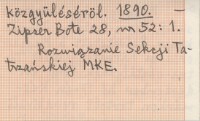 közgyüléséröl. 1890.
Zipser Bote 28, nr 52: 1.
Rozwiązanie Sekcji Ta-
trzańskiej MKE.